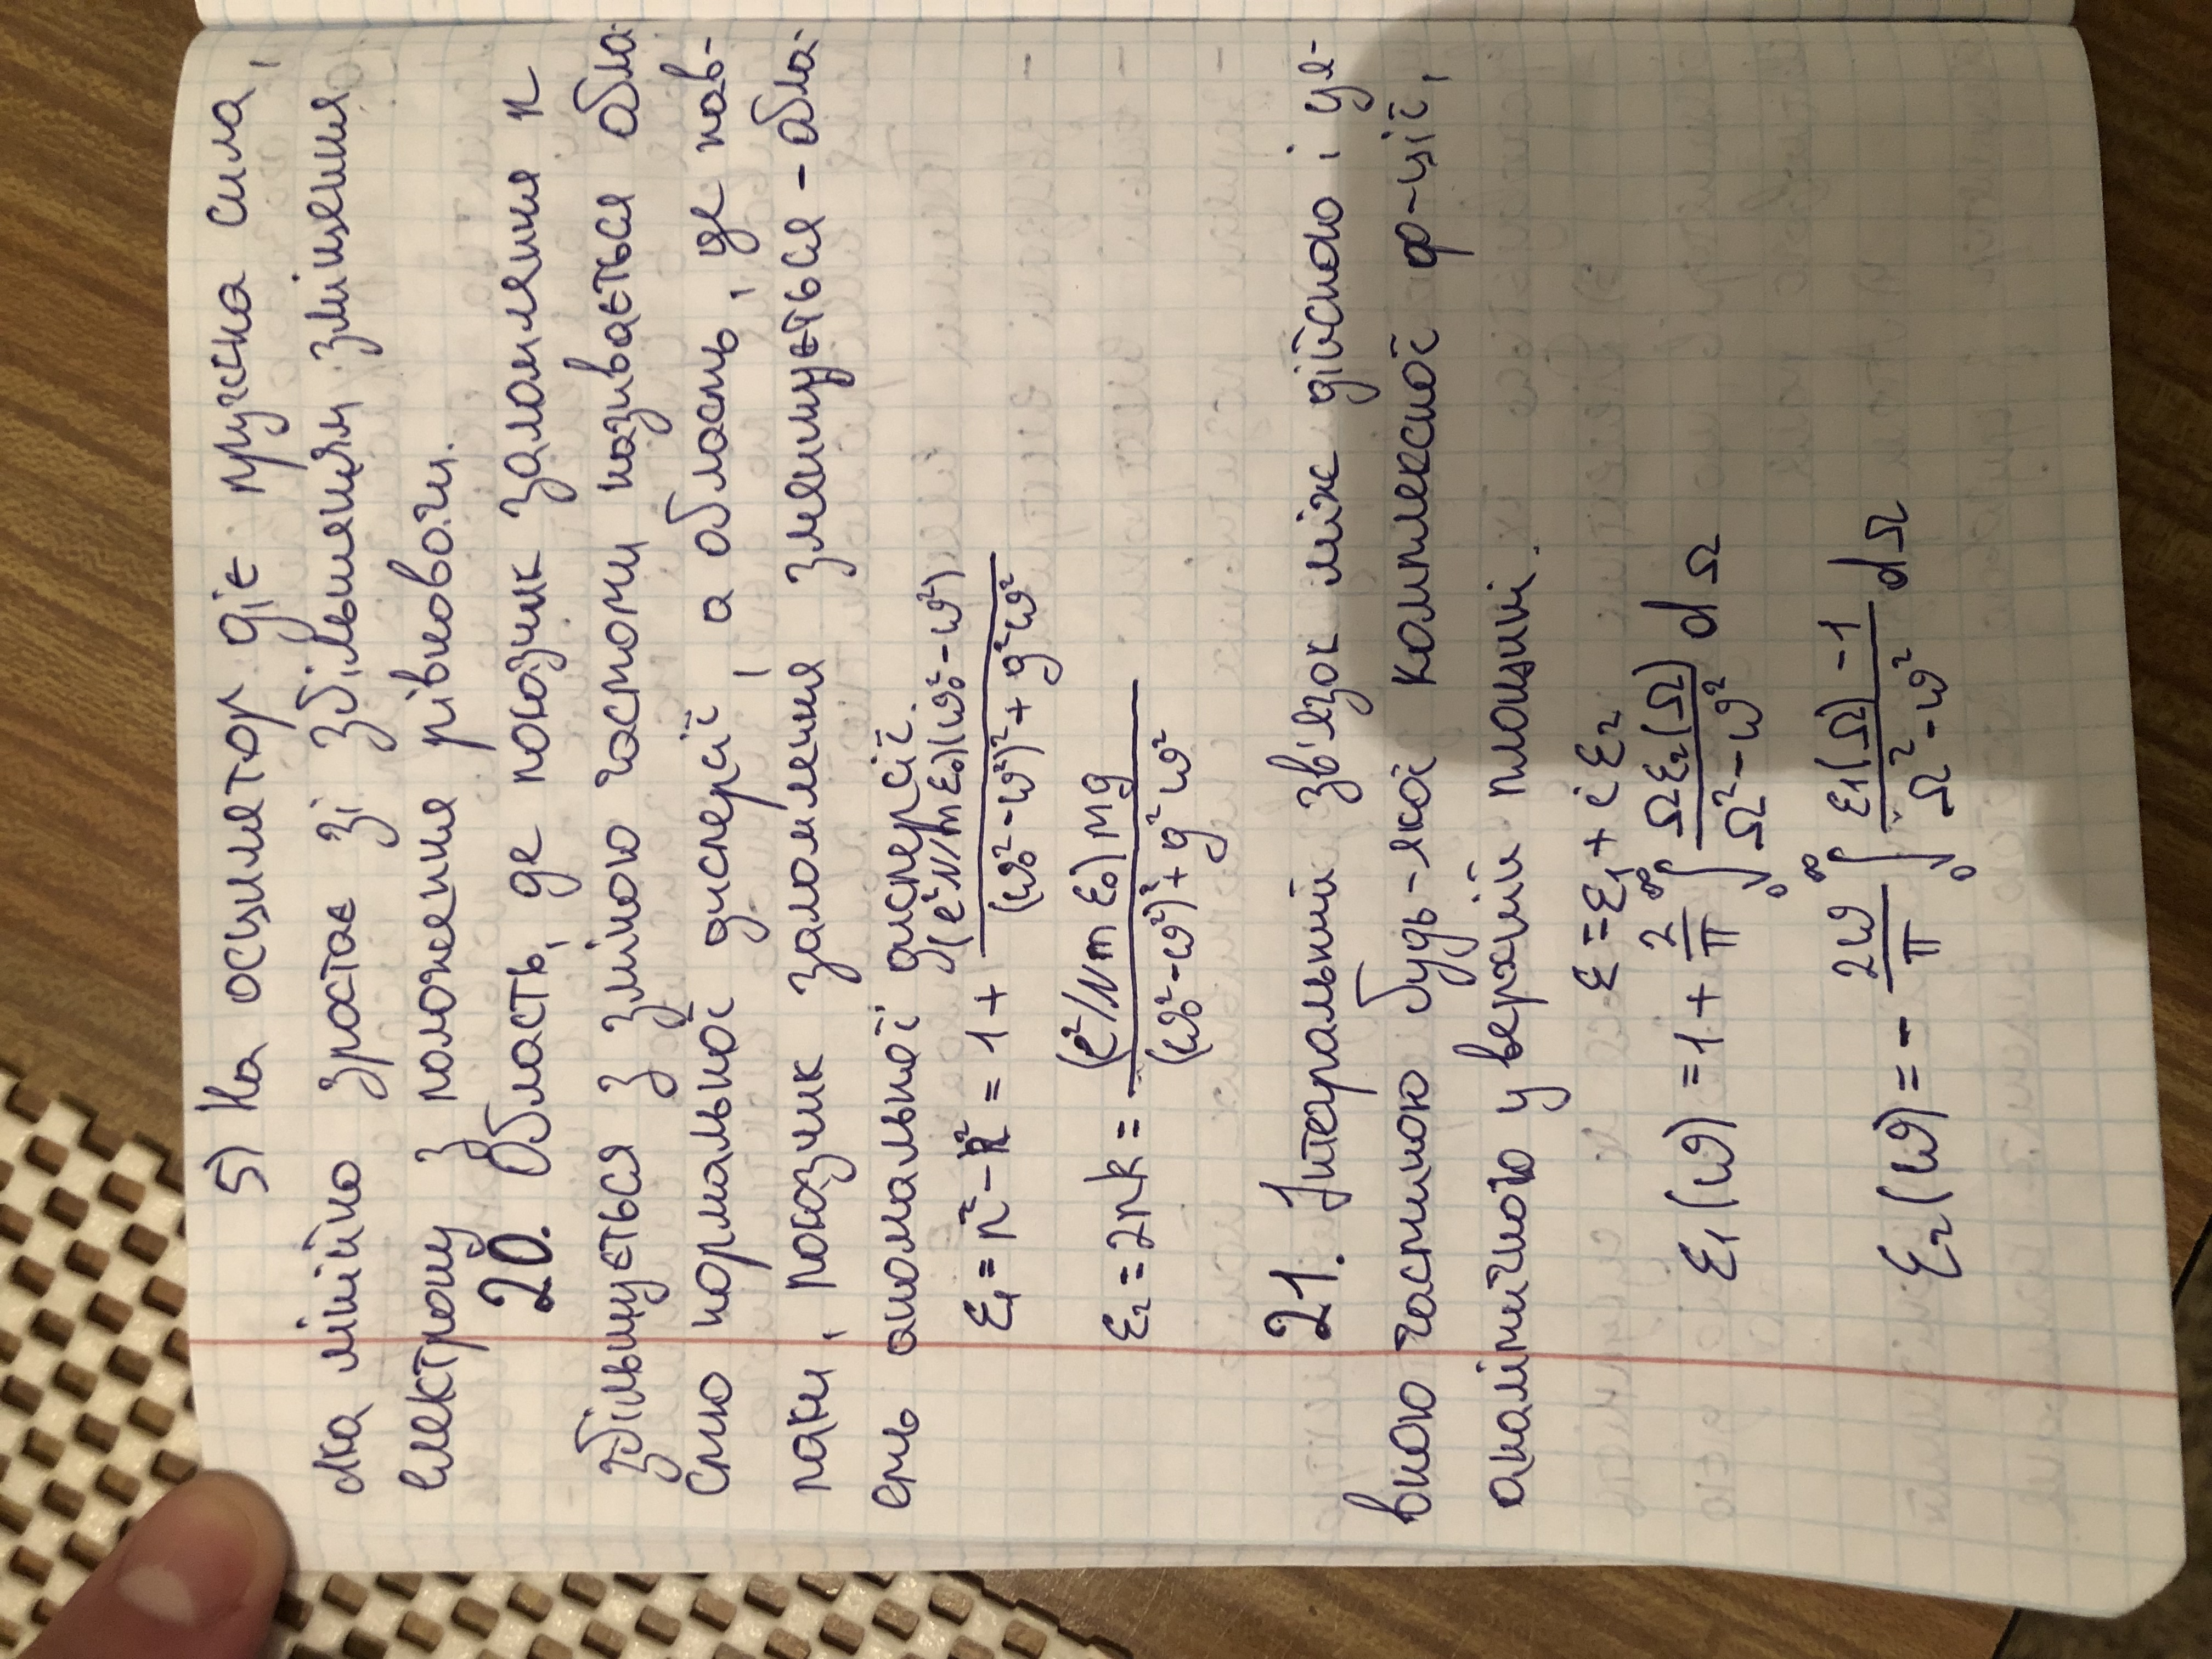 5) На осцилятор діє пружна сила,
яка лінійно зростає зі збільшенням зміщення
електрону з положення рівноваги.
20. Область, де показчик заломлення n
збільшується з зміною частоти називається обла-
стю нормальної дисперсії, а область, де нав-
паки, показчик заломлення зменшується - обла-
сть аномальної дисперсії.
ε₁ = n² - k² = 1 + (e²N/mε₀)(ω₀² - ω²) / ((ω₀² - ω²)² + g²ω²)
ε₂ = 2nk = (e²/Nmε₀) mg / ((ω₀² - ω²)² + g²ω²)
21. Інтегральний зв'язок між дійсною і уя-
вною частиною будь-якої комплексної ф-ції,
аналітичною у верхній площині.
ε = ε₁ + iε₂
ε₁(ω) = 1 + 2/π ∫₀^∞ Ωε₂(Ω) / (Ω² - ω²) dΩ
ε₂(ω) = - 2ω/π ∫₀^∞ (ε₁(Ω) - 1) / (Ω² - ω²) dΩ